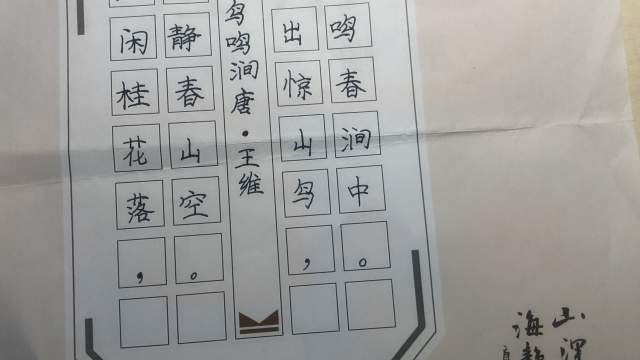 闲桂花落，
静春山空。
鸟鸣涧唐·王维
出惊山鸟，
鸣春涧中。
山
海静